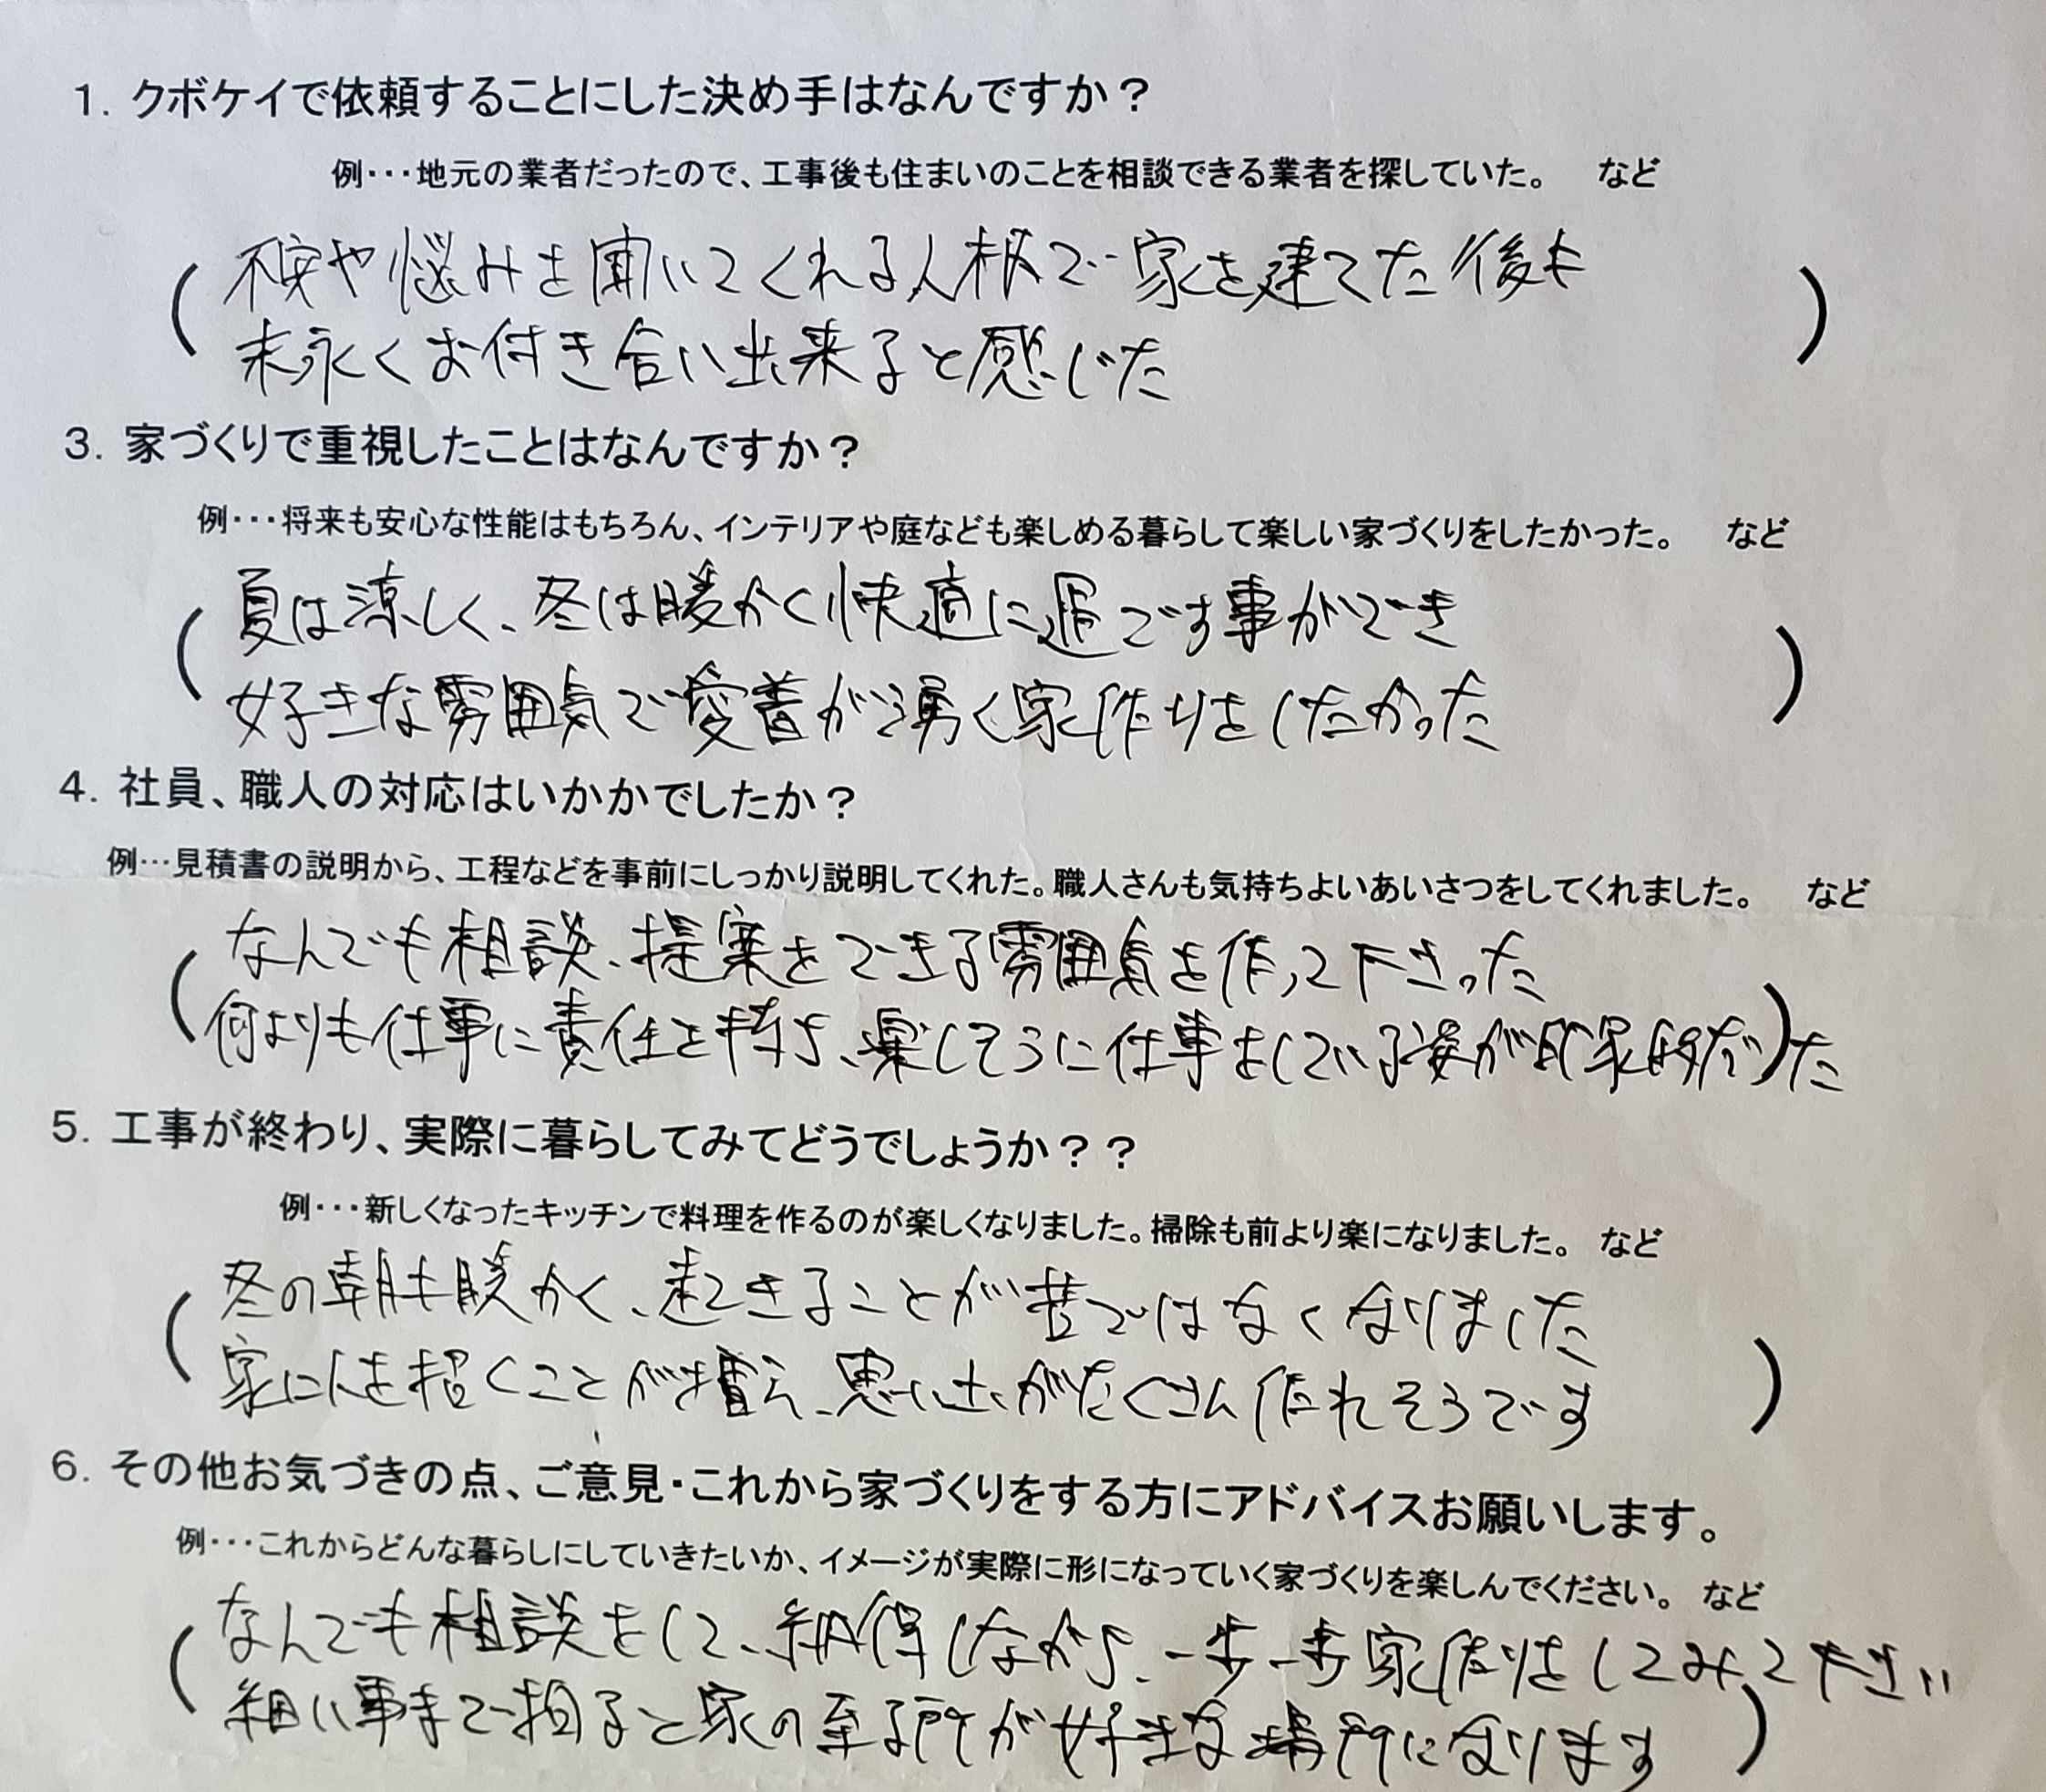 1. クボケイで依頼することにした決め手はなんですか？
例･･･地元の業者だったので、工事後も住まいのことを相談できる業者を探していた。 など
( 不安や悩みを聞いてくれる人柄で家を建てた後も )
末永くお付き合い出来ると感じた
3. 家づくりで重視したことはなんですか？
例･･･将来も安心な性能はもちろん、インテリアや庭なども楽しめる暮らして楽しい家づくりをしたかった。 など
( 夏は涼しく、冬は暖かく快適に過ごす事ができ )
好きな雰囲気で愛着が湧く家作りをしたかった
4. 社員、職人の対応はいかかでしたか？
例･･･見積書の説明から、工程などを事前にしっかり説明してくれた。職人さんも気持ちよいあいさつをしてくれました。 など
( なんでも相談、提案をできる雰囲気を作って下さった
何よりも仕事に責任を持ち、楽しそうに仕事をしている姿が印象的だった )
5. 工事が終わり、実際に暮らしてみてどうでしょうか？？
例･･･新しくなったキッチンで料理を作るのが楽しくなりました。掃除も前より楽になりました。 など
( 冬の朝も暖かく、起きることが苦ではなくなりました
家に人を招くことが増え、思い出がたくさん作れそうです )
6. その他お気づきの点、ご意見･これから家づくりをする方にアドバイスお願いします。
例･･･これからどんな暮らしにしていきたいか、イメージが実際に形になっていく家づくりを楽しんでください。 など
( なんでも相談をして、納得しながら、一歩一歩家作りをしてみて下さい
細い事まで拘ると家の至る所が好きな場所になります )